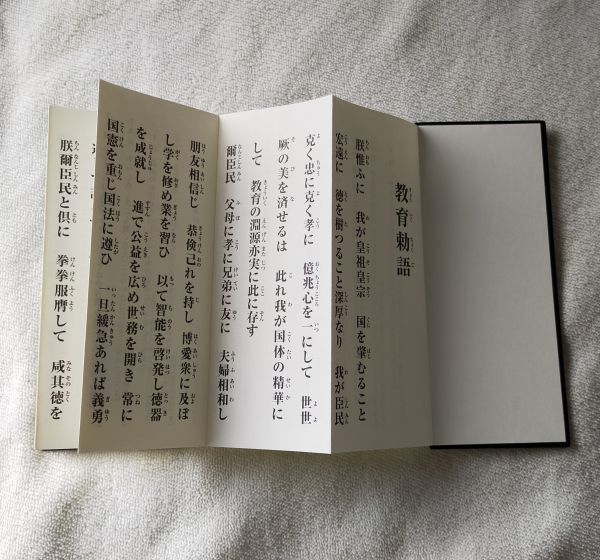 教育勅語
朕惟ふに 我が皇祖皇宗 国を肇むること
宏遠に 徳を樹つること深厚なり 我が臣民
克く忠に克く孝に 億兆心を一にして 世世
厥の美を済せるは 此れ我が国体の精華に
して 教育の淵源亦実に此に存す
爾臣民 父母に孝に兄弟に友に 夫婦相和し
朋友相信じ 恭倹己れを持し 博愛衆に及ぼ
し学を修め業を習ひ 以て智能を啓発し徳器
を成就し 進で公益を広め世務を開き 常に
国憲を重じ国法に遵ひ 一旦緩急あれば義勇
朕爾臣民と倶に 拳拳服膺して 咸其徳を